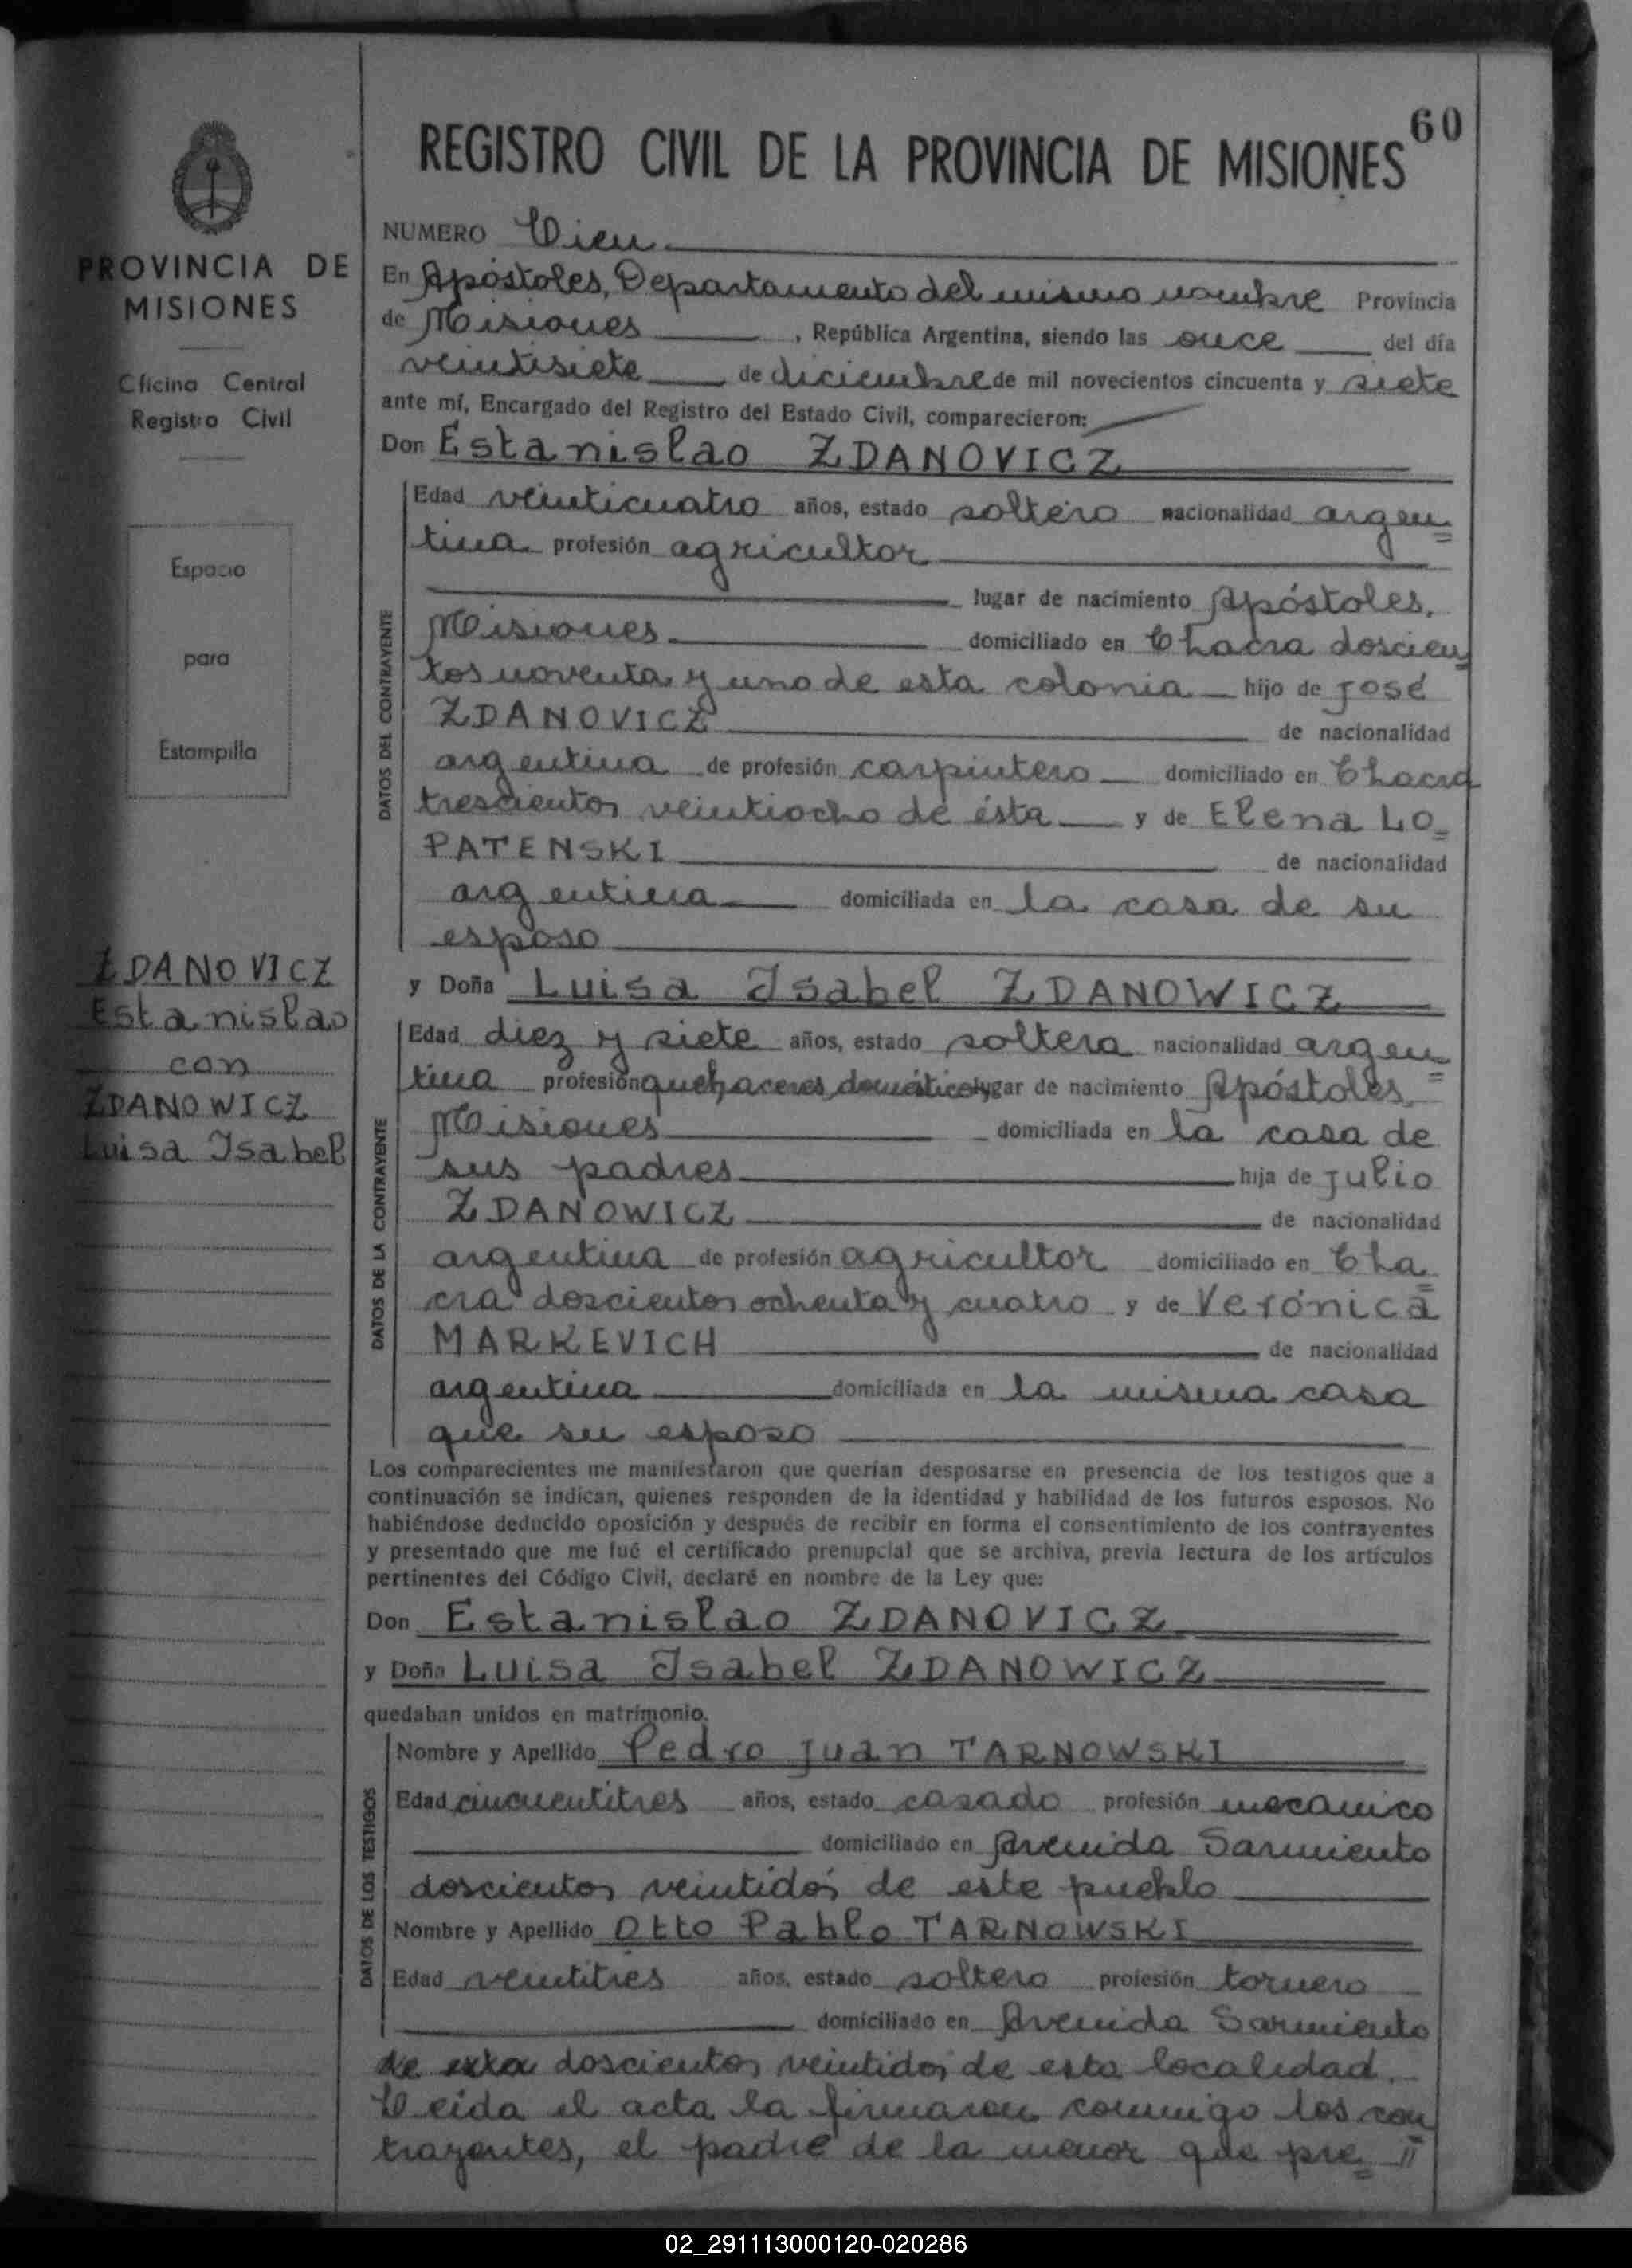 60
REGISTRO CIVIL DE LA PROVINCIA DE MISIONES
PROVINCIA DE
MISIONES
Oficina Central
Registro Civil
Espacio
para
Estampilla
ZDANOVICZ
Estanislao
con
ZDANOWICZ
Luisa Isabel
NUMERO Cien
En Apóstoles, Departamento del mismo nombre Provincia
de Misiones, República Argentina, siendo las once del día
veintisiete de diciembre de mil novecientos cincuenta y siete
ante mí, Encargado del Registro del Estado Civil, comparecieron:
Don Estanislao ZDANOVICZ
DATOS DEL CONTRAYENTE
Edad veinticuatro años, estado soltero nacionalidad argen=
tina profesión agricultor
lugar de nacimiento Apóstoles,
Misiones domiciliado en Chacra doscien=
tos noventa y uno de esta colonia hijo de José
ZDANOVICZ de nacionalidad
argentina de profesión carpintero domiciliado en Chacra
trescientos veintiocho de ésta y de Elena LO=
PATENSKI de nacionalidad
argentina domiciliada en la casa de su
esposo
y Doña Luisa Isabel ZDANOWICZ
DATOS DE LA CONTRAYENTE
Edad diez y siete años, estado soltera nacionalidad argen=
tina profesión quehaceres domésticos lugar de nacimiento Apóstoles,
Misiones domiciliada en la casa de
sus padres hija de Julio
ZDANOWICZ de nacionalidad
argentina de profesión agricultor domiciliado en Cha=
cra doscientos ochenta y cuatro y de Verónica
MARKEVICH de nacionalidad
argentina domiciliada en la misma casa
que su esposo
Los comparecientes me manifestaron que querían desposarse en presencia de los testigos que a
continuación se indican, quienes responden de la identidad y habilidad de los futuros esposos. No
habiéndose deducido oposición y después de recibir en forma el consentimiento de los contrayentes
y presentado que me fué el certificado prenupcial que se archiva, previa lectura de los artículos
pertinentes del Código Civil, declaré en nombre de la Ley que:
Don Estanislao ZDANOVICZ
y Doña Luisa Isabel ZDANOWICZ
quedaban unidos en matrimonio.
DATOS DE LOS TESTIGOS
Nombre y Apellido Pedro Juan TARNOWSKI
Edad cincuentitres años, estado casado profesión mecanico
domiciliado en Avenida Sarmiento
doscientos veintidós de este pueblo
Nombre y Apellido Otto Pablo TARNOWSKI
Edad veintitres años, estado soltero profesión tornero
domiciliado en Avenida Sarmiento
de esta doscientos veintidos de esta localidad.
Leida el acta la firmaron conmigo los con=
trayentes, el padre de la menor que pre= //
02_291113000120-020286